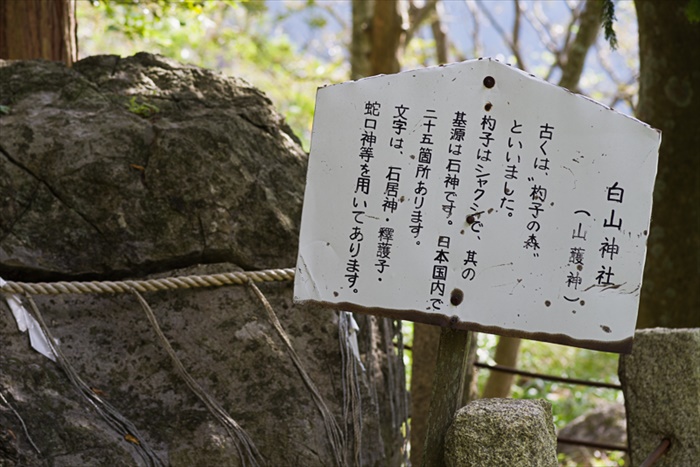 白山神社
（山護神）
古くは、〝杓子の森〟
といいました。
杓子はシャクシで、其の
基源は石神です。日本国内で
二十五箇所あります。
文字は、石居神・釋護子・
蛇口神等を用いてあります。